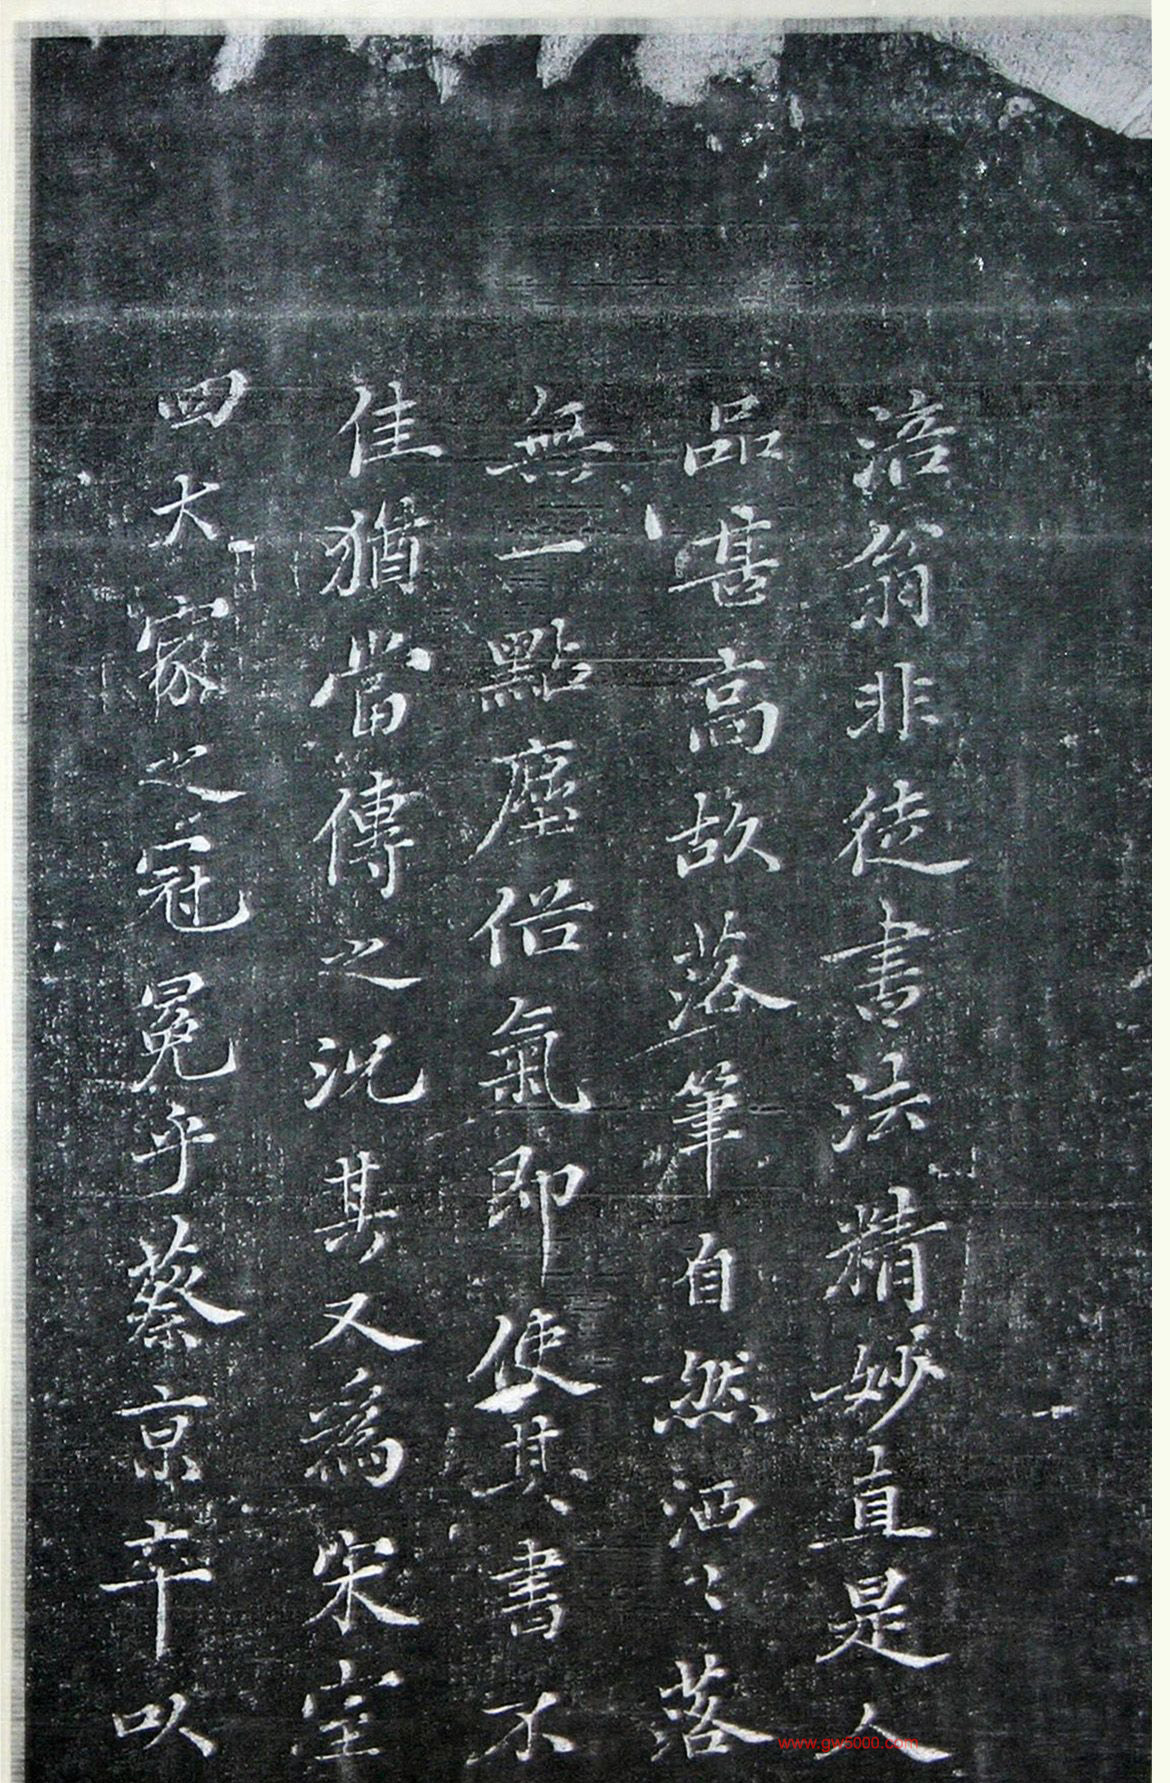 涪翁非徒書法精妙直是人
品甚高故落筆自然洒〻落
無一點塵俗氣即使其書不
佳猶當傳之況其又為宋室
四大家之冠冕乎蔡京卒以
www.gw5000.com